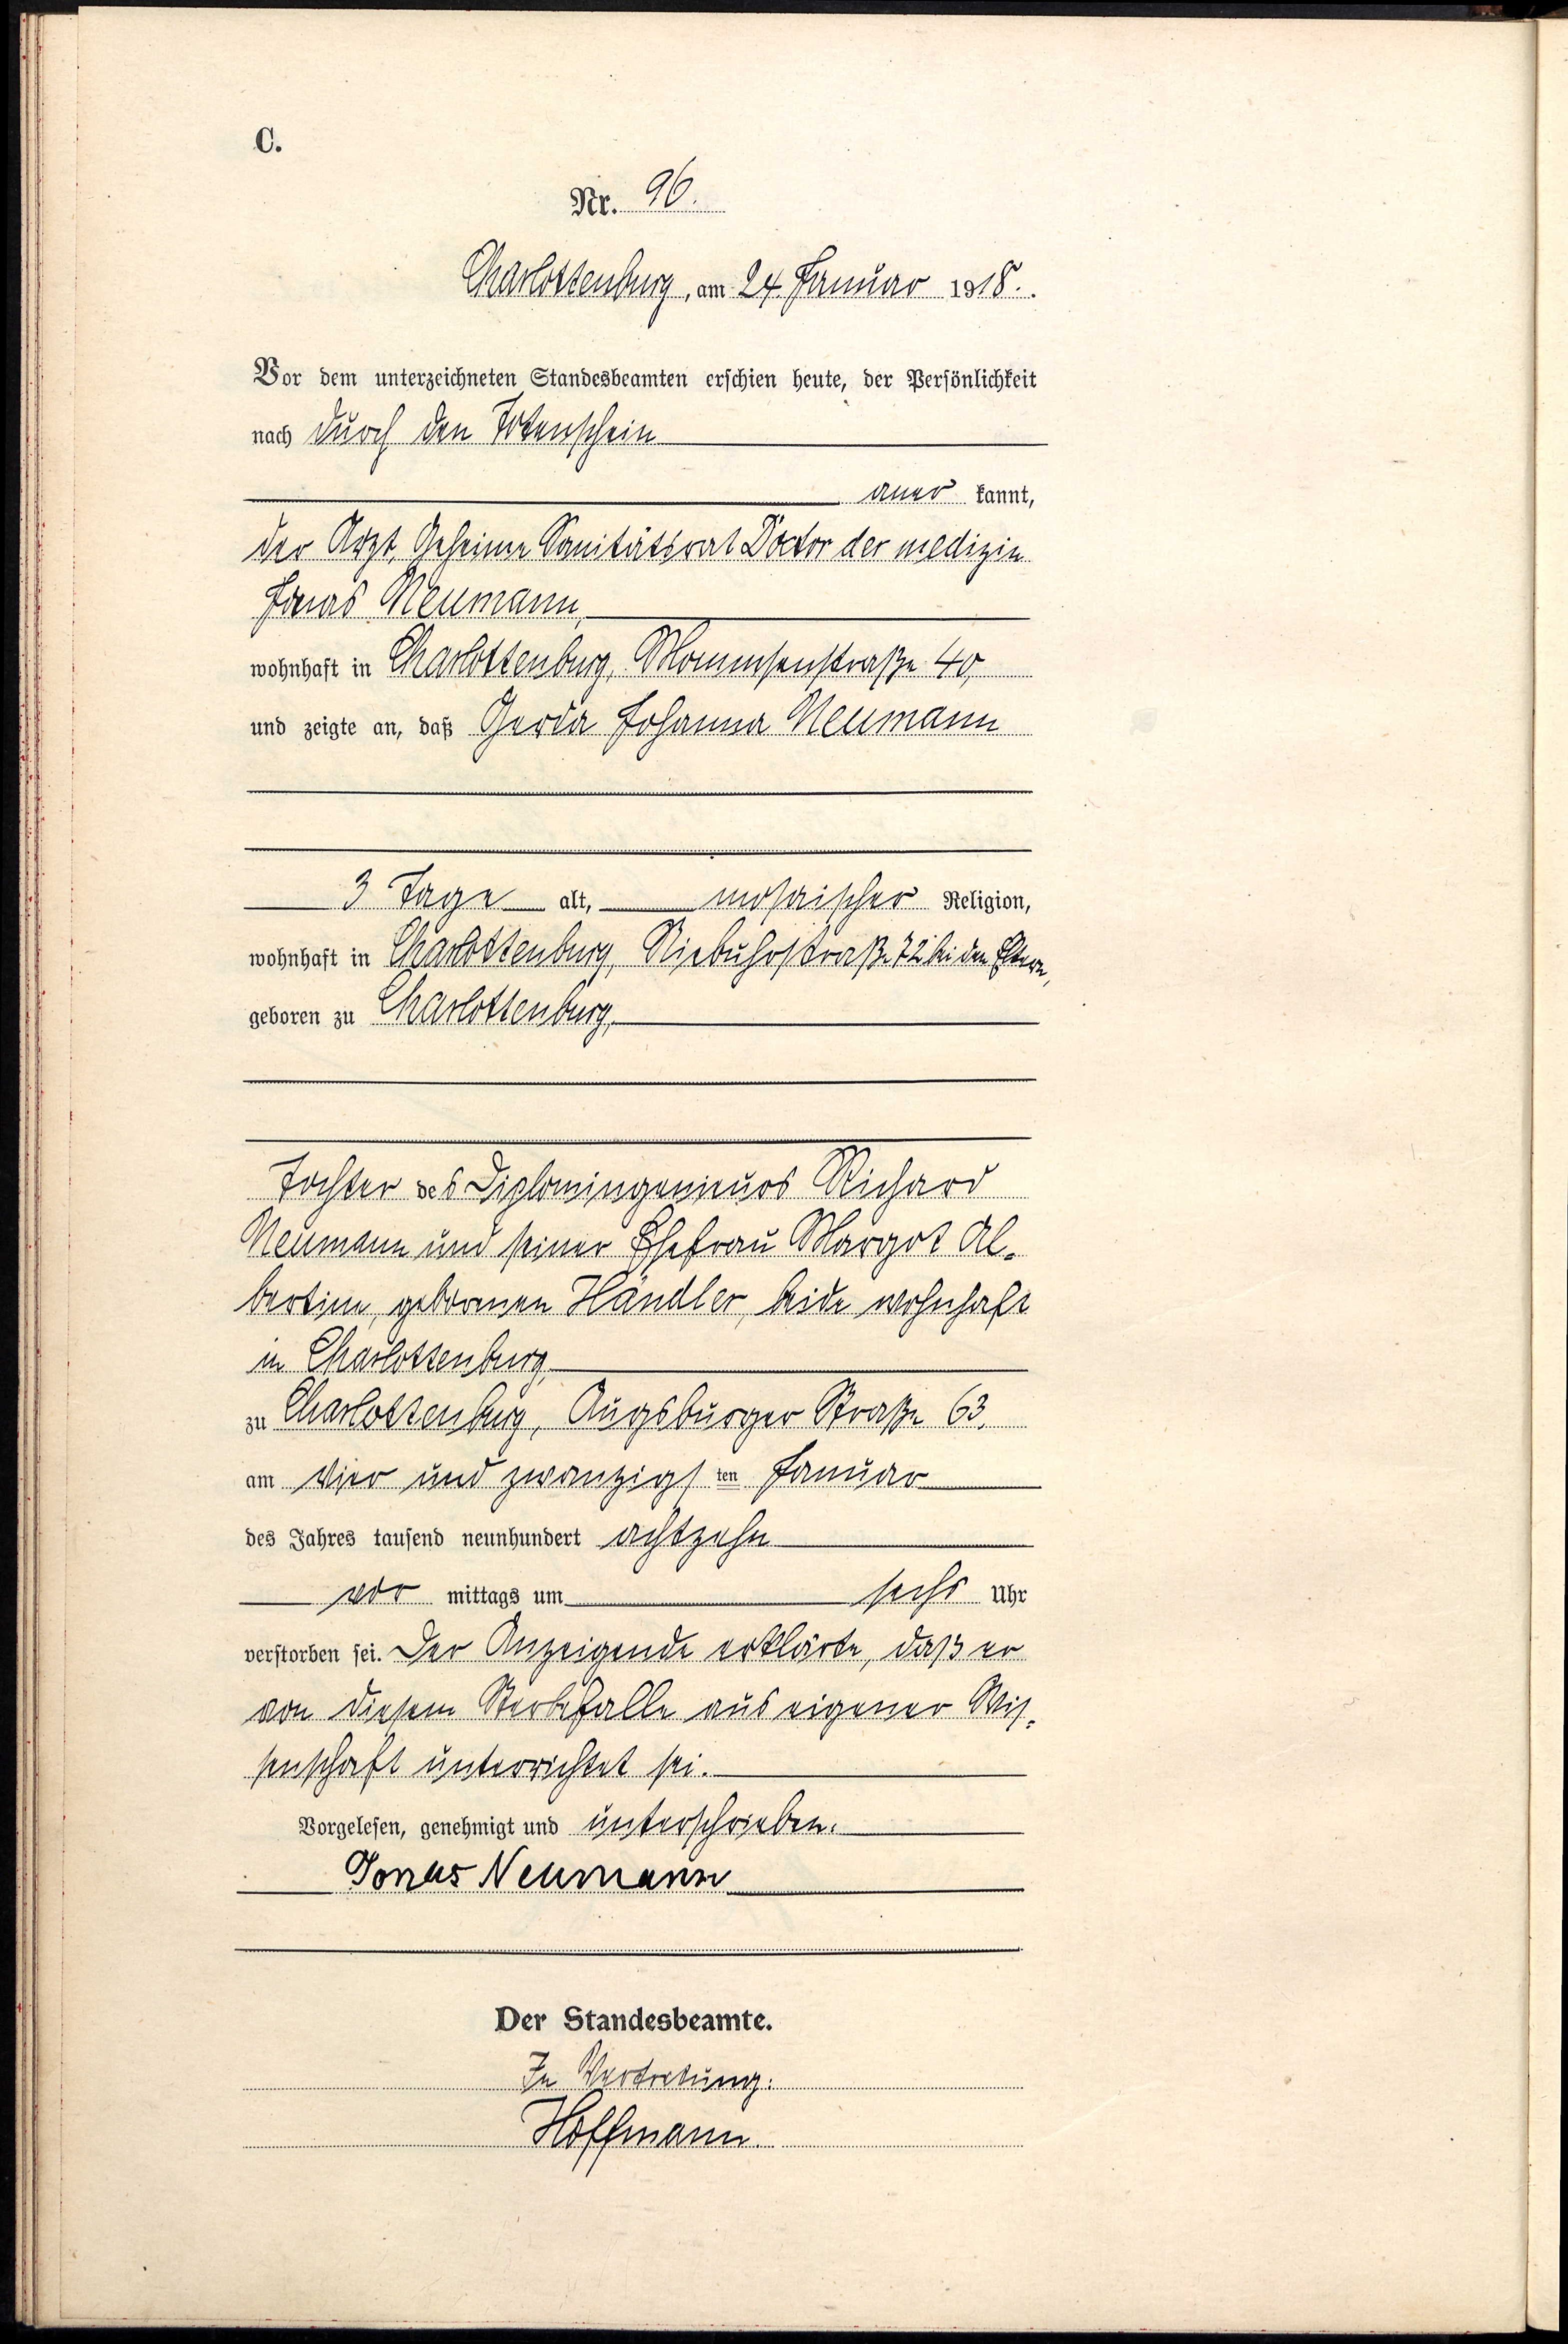 C.
Nr. 96.
Charlottenburg, am 24. Januar 1918.
Vor dem unterzeichneten Standesbeamten erschien heute, der Persönlichkeit
nach durch den Totenschein
aner kannt,
der Arzt, Geheime Sanitätsrat Doctor der medizin
Jonas Neumann,
wohnhaft in Charlottenburg, Mommsenstraße 40,
und zeigte an, daß Gerda Johanna Neumann
3 Tage alt, mosaischer Religion,
wohnhaft in Charlottenburg, Niebuhrstraße 72 bei den Eltern,
geboren zu Charlottenburg,
Tochter des Diplomingenieurs Richard
Neumann und seiner Ehefrau Margot Al-
bertine, geborenen Händler, beide wohnhaft
in Charlottenburg,
zu Charlottenburg, Augsburger Straße 63,
am vier und zwanzigs ten Januar
des Jahres tausend neunhundert achtzehn
vor mittags um sechs Uhr
verstorben sei. Der Anzeigende erklärte, daß er
von diesem Sterbefalle aus eigener Wis-
senschaft unterrichtet sei.
Vorgelesen, genehmigt und unterschrieben.
Jonas Neumann
Der Standesbeamte.
In Vertretung:
Hoffmann.